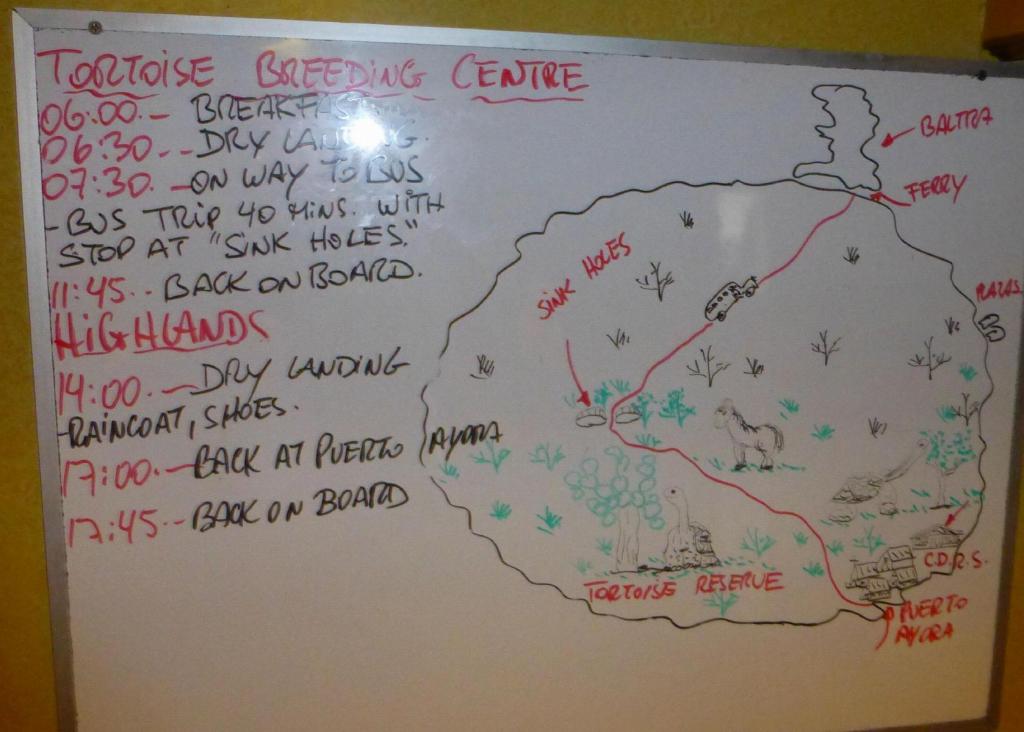 TORTOISE BREEDING CENTRE
06:00.- BREAKFAST
06:30.- DRY LANDING.
07:30.- ON WAY TO BUS
- BUS TRIP 40 MINS. WITH
STOP AT "SINK HOLES."
11:45.- BACK ON BOARD.
HIGHLANDS
14:00.- DRY LANDING
-RAINCOAT, SHOES.
17:00.- BACK AT PUERTO AYORA
17:45.- BACK ON BOARD
BALTRA
FERRY
SINK HOLES
PLAZAS
C.D.R.S.
TORTOISE RESERVE
PUERTO
AYORA